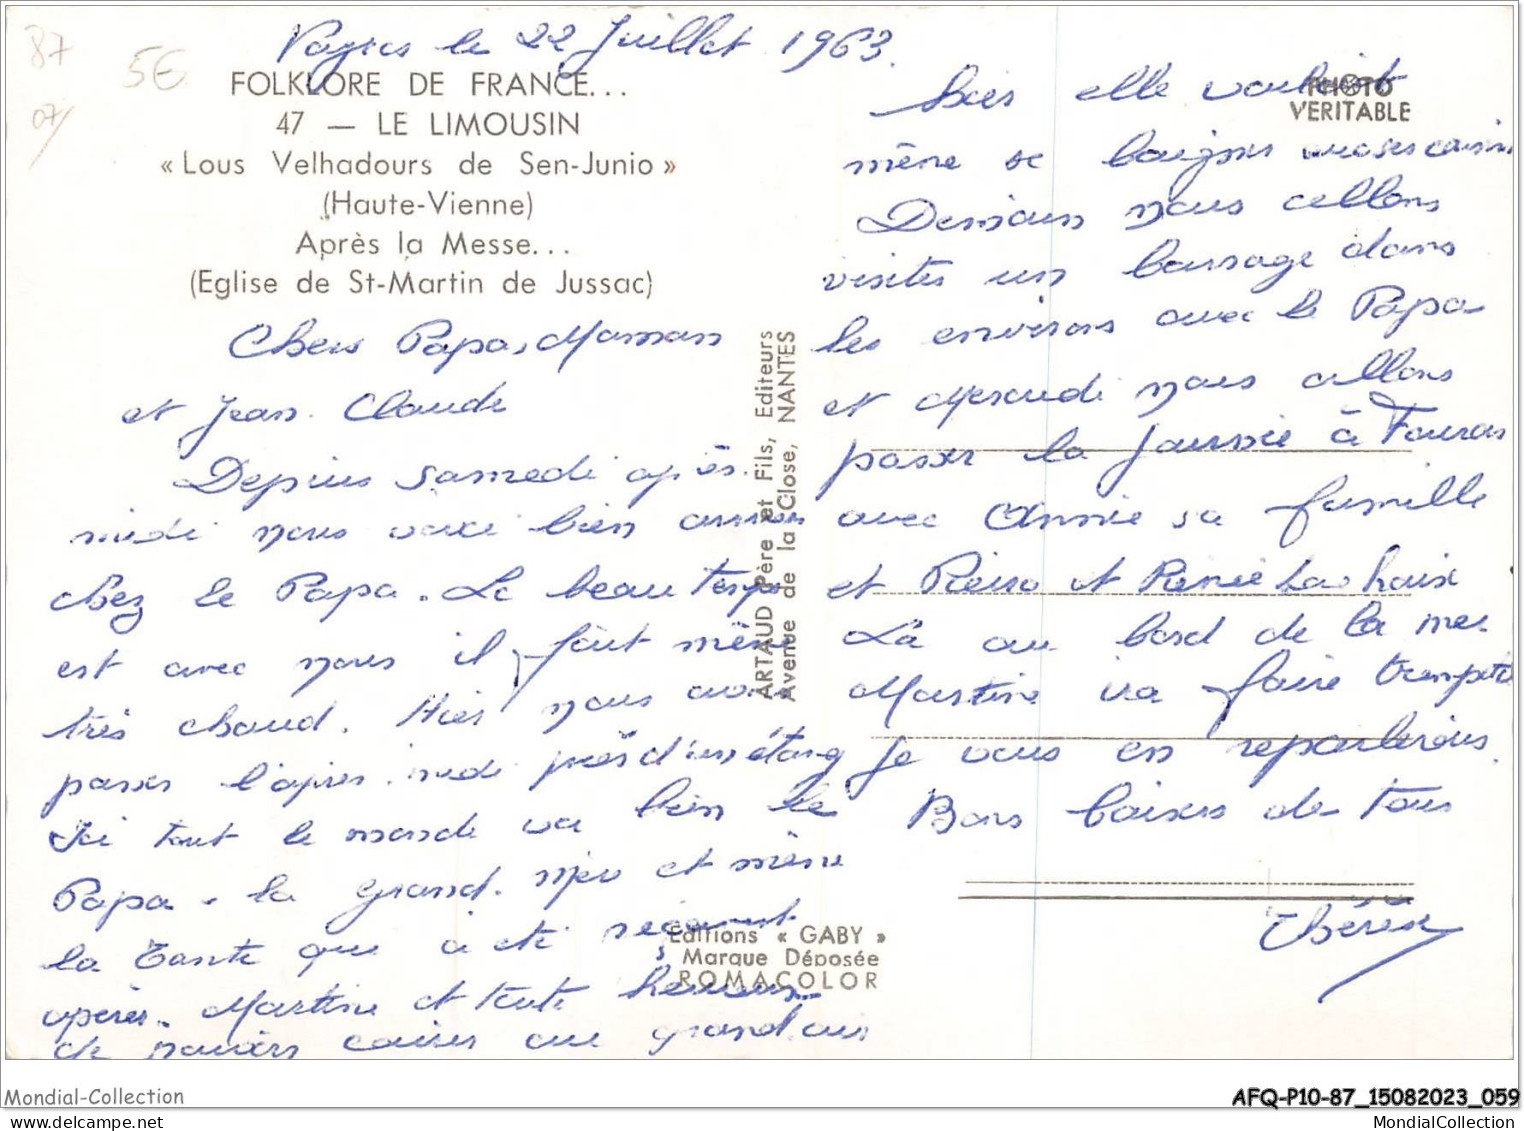 87
5€
07/
Vayres le 22 Juillet 1963.
FOLKLORE DE FRANCE...
47 — LE LIMOUSIN
« Lous Velhadours de Sen-Junio »
(Haute-Vienne)
Après la Messe...
(Eglise de St-Martin de Jussac)
Chers Papa, Maman
et Jean-Claude
Depuis samedi après-
midi nous voici bien
chez le Papa. Le beau temps
est avec nous il fait même
très chaud. Hier nous avons
passer l'après-midi près d'un étang
Ici tout le monde va bien le
Papa - la grand-mère et même
la Tante que a été
opérée. Martine est toute heureuse
de pouvoir courir au grand air
ARTAUD Père et Fils, Editeurs
Avenue de la Close, NANTES
Editions « GABY »
Marque Déposée
ROMACOLOR
PHOTO
VERITABLE
hier elle voulait
même se baigner
Demain nous allons
visiter un barrage dans
les environs avec le Papa
et Mercredi nous allons
passer la journée à Fouras
avec Annie sa famille
et et Renée
Là au bord de la mer
Martine ira faire trempette
Je vous en reparlerais.
Bons baisers de tous
Thérèse
Mondial-Collection
AFQ-P10-87_15082023_059
MondialCollection